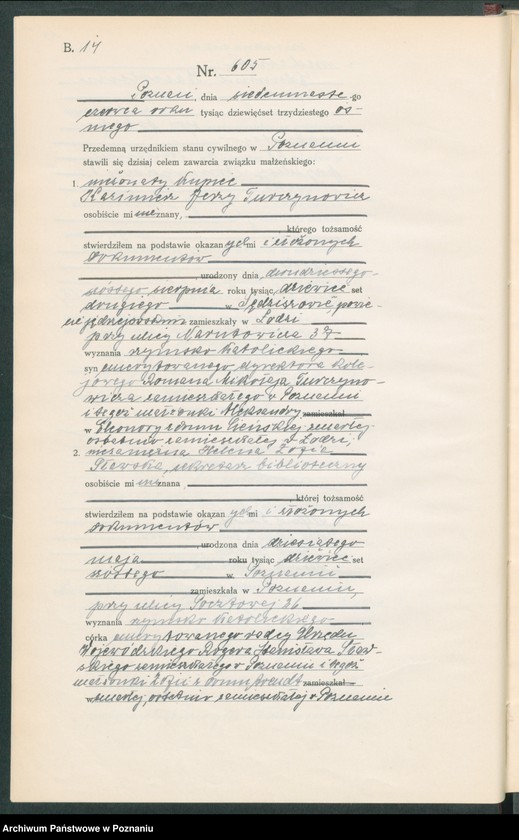 B. 14
Nr. 605
Poznań, dnia siedemnastego
czerwca roku tysiąc dziewięćset trzydziestego ós-
mego
Przedemną urzędnikiem stanu cywilnego w Poznaniu
stawili się dzisiaj celem zawarcia związku małżeńskiego:
1. nieżonaty kupiec
Kazimierz Jerzy Turczynowicz
osobiście mi nieznany,
którego tożsamość
stwierdziłem na podstawie okazanych mi i złożonych
dokumentów
, urodzony dnia dwudziestego
szóstego sierpnia roku tysiąc dziewięćset
drugiego w Sędziszowie, powie-
cie jędrzejowskim zamieszkały w Łodzi
przy ulicy Narutowicza 37
wyznania rzymsko katolickiego
syn emerytowanego dyrektora kole-
jowego Romana Mikołaja Turczyno-
wicza zamieszkałego w Poznaniu
i tegoż małżonki Aleksandry zamieszkał
w Eleonory z domu zmarłej,
ostatnio zamieszkałej w Łodzi,
2. niezamężna Helena Zofia
sekretarz biblioteczny
osobiście mi nieznana
, której tożsamość
stwierdziłem na podstawie okazanych mi i złożonych
dokumentów
, urodzona dnia dziesiątego
maja roku tysiąc dziewięćset
szóstego w Poznaniu
zamieszkała w Poznaniu,
przy ulicy Pocztowej 26
wyznania rzymsko katolickiego
córka emerytowanego radcy Urzędu
Wojewódzkiego Rogera Stanisława
zamieszkałego w Poznaniu i tegoż
małżonki Zofii z domu zamieszkał
w zmarłej, ostatnio zamieszkałej w Poznaniu
Archiwum Państwowe w Poznaniu